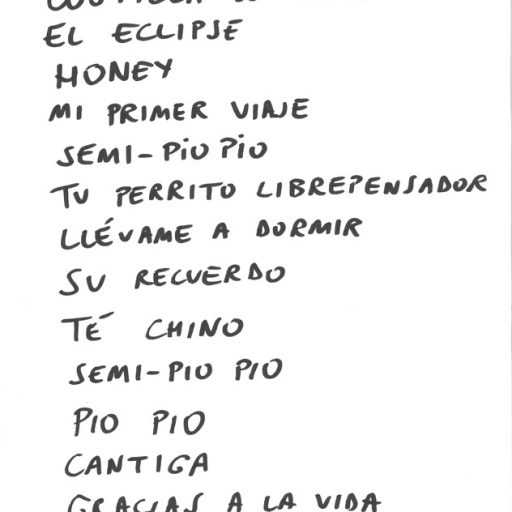 EL ECLIPSE
HONEY
MI PRIMER VIAJE
SEMI-PIO PIO
TU PERRITO LIBREPENSADOR
LLÉVAME A DORMIR
SU RECUERDO
TÉ CHINO
SEMI-PIO PIO
PIO PIO
CANTIGA
GRACIAS A LA VIDA